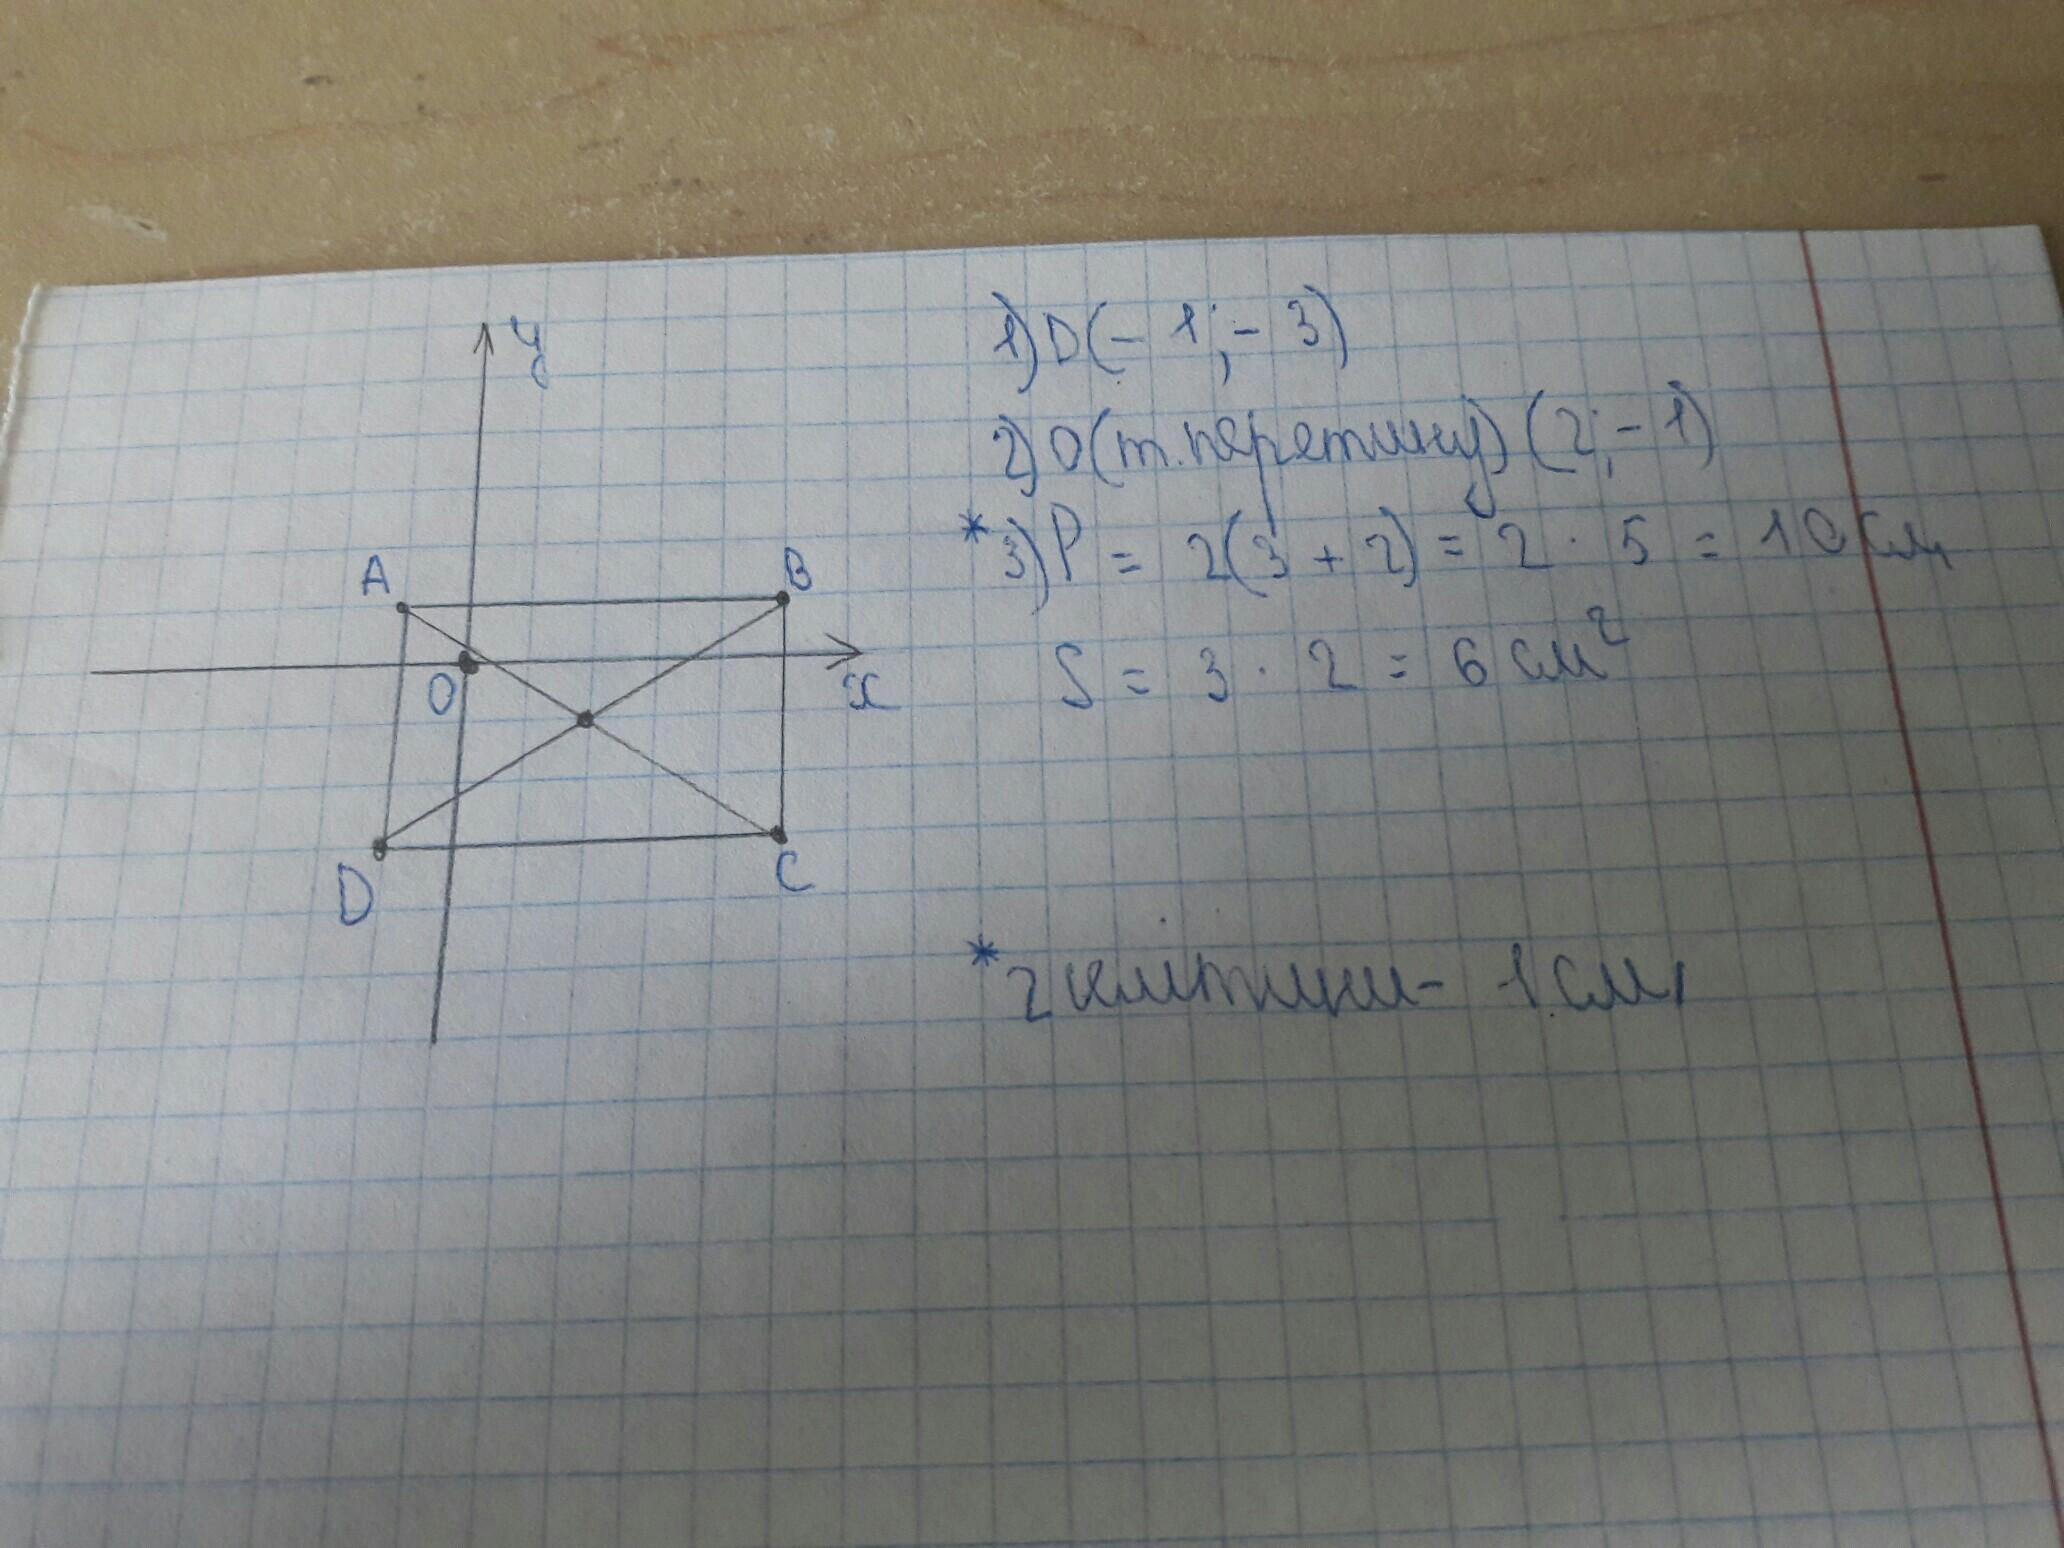 y
A
B
O
x
D
C
1) D(- 1; - 3)
2) O(т. перетину) (2; - 1)
* 3) P = 2(3 + 2) = 2 · 5 = 10 см
S = 3 · 2 = 6 см²
* 2 клітини - 1 см